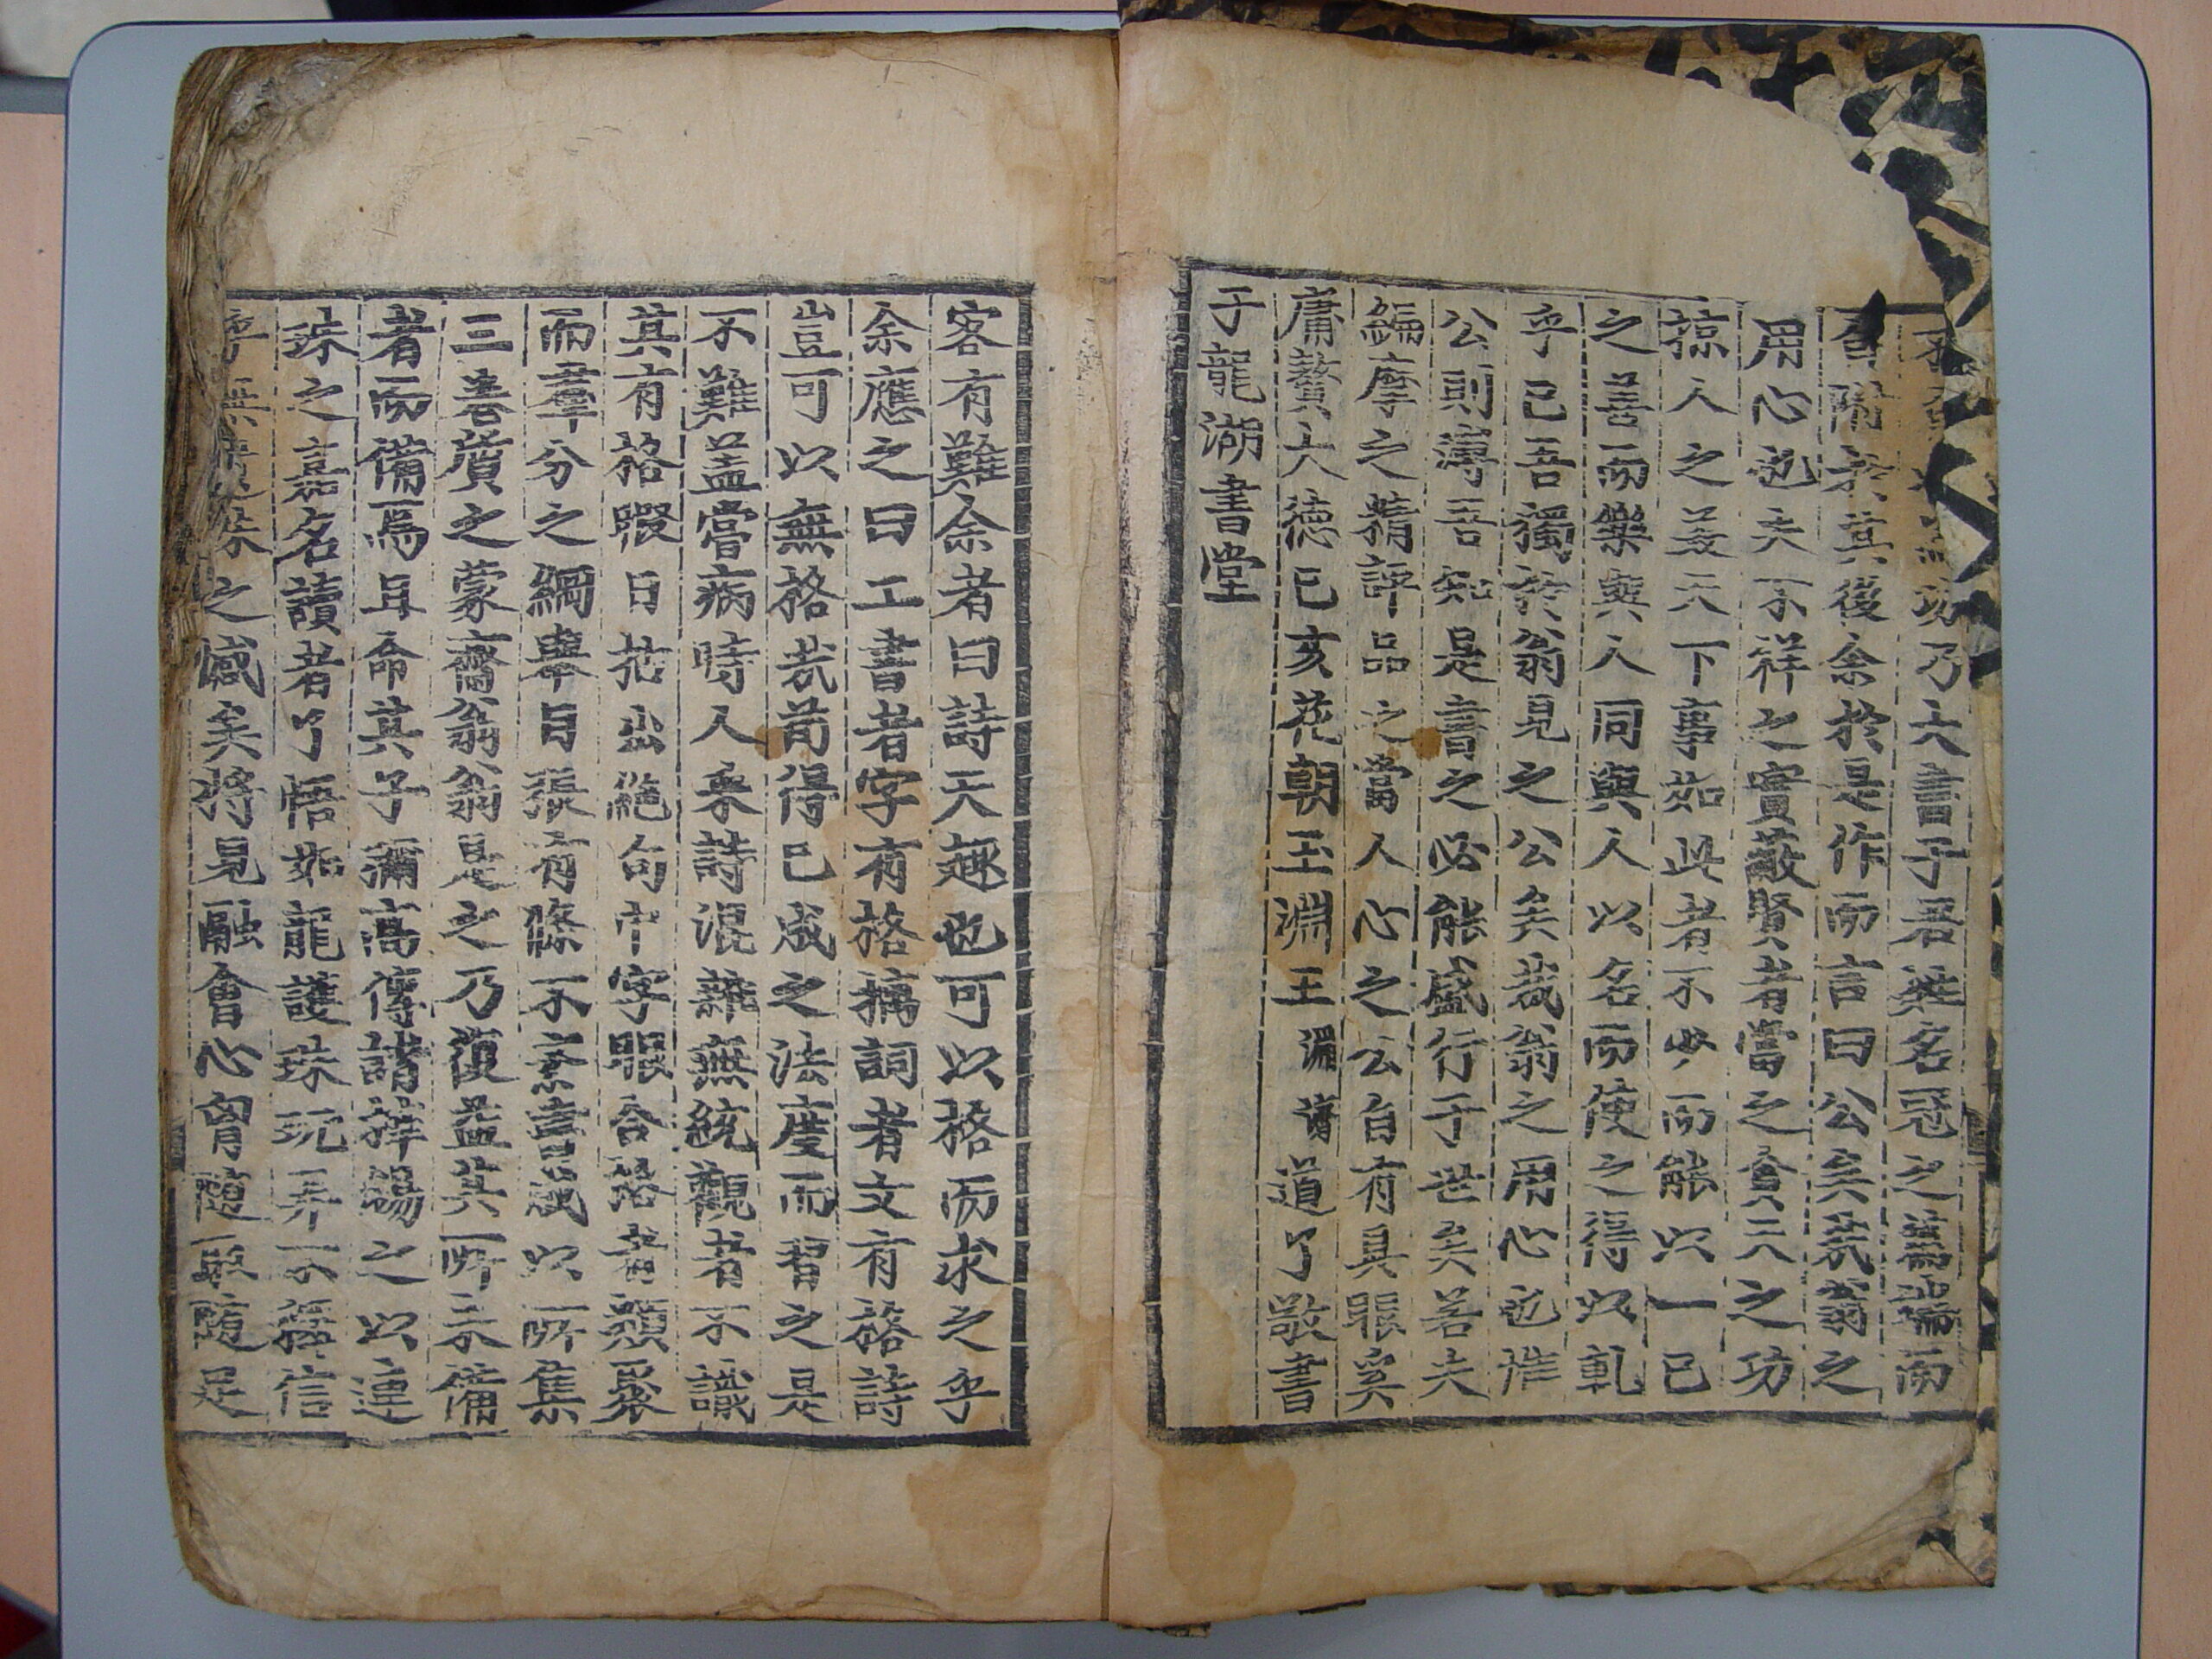 功乃大書予吾姓名冠之舊端而
於其後余於是作而言曰公矣哉翁之
用心也夫不祥之實蔽賢者當之貪天之功
掠人之美天下事如此者不少而能以一己
之善而樂與人同與人以名而使之得以軋
乎己吾獨於翁見之公矣哉翁之用心也惟
公則溥吾知是書之必能盛行于世矣若夫
編摩之精評品之當人心之公自有具眼奚
庸贅大德己亥花朝玉淵王 道了敬書
于龍湖書堂
客有難余者曰詩天趣也可以格而求之乎
余應之曰工書者字有格摛詞者文有格詩
豈可以無格哉苟得已成之法度而習之是
不難益嘗病時人采詩混雜無統觀者不識
其有格暇日拈出絶句中字眼合格者類聚
而羣分之綱舉目張有條不紊書成以所集
三善質之蒙齋翁翁是之乃復益其所未備
者而備焉且命其子彌高傳諸梓錫之以連
珠之嘉名讀者了悟如龍護珠玩弄不釋信
乎無遺珠之憾矣將見融會心胷隨取隨足